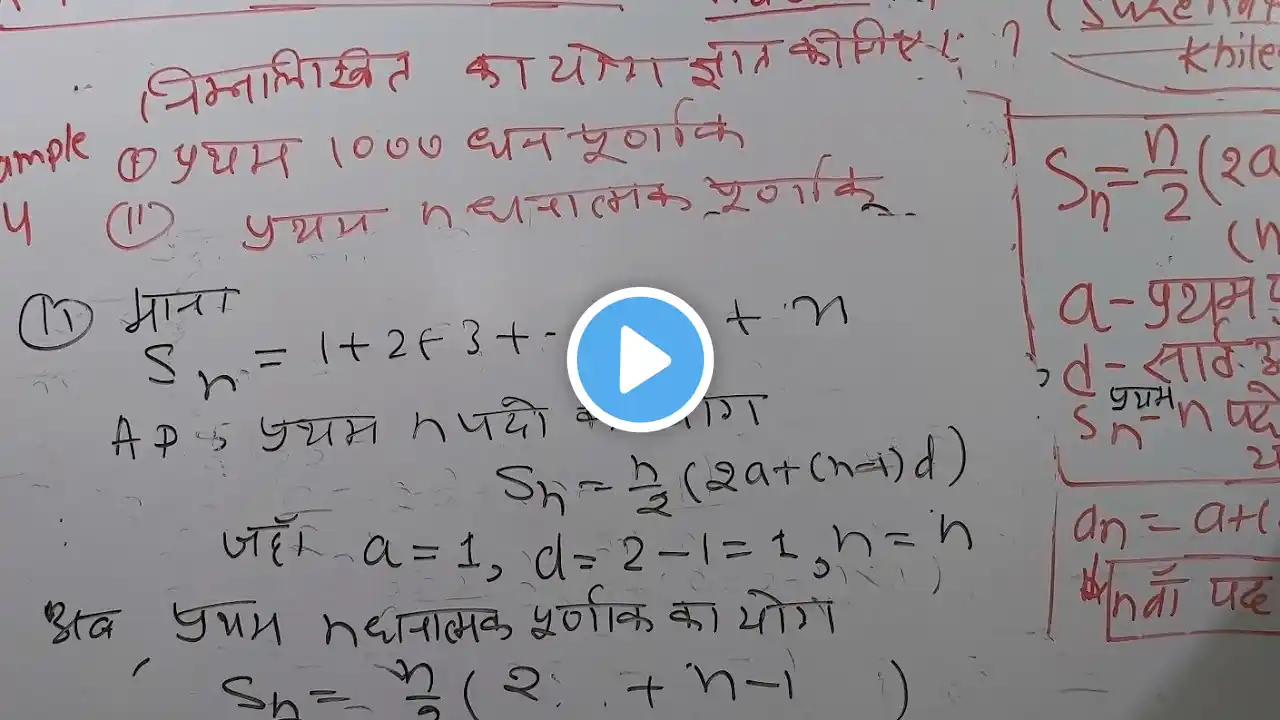 निम्नलिखित का योग ज्ञात कीजिए :
ample ① प्रथम 1000 धन पूर्णांक
4 (11) प्रथम n धनात्मक पूर्णांक
(11) माना
Sn = 1 + 2 + 3 + - + n
AP प्रथम n पदो योग
Sn = n/2 (2a + (n-1)d)
जहाँ a = 1, d = 2 - 1 = 1, n = n
अब प्रथम n धनात्मक पूर्णांक का योग
Sn = n/2 ( 2 + n - 1 )
Khile
Sn = n/2 (2a
(n
a - प्रथम
d - सार्व
Sn - प्रथम n पदो
an = a + (
nवाँ पद